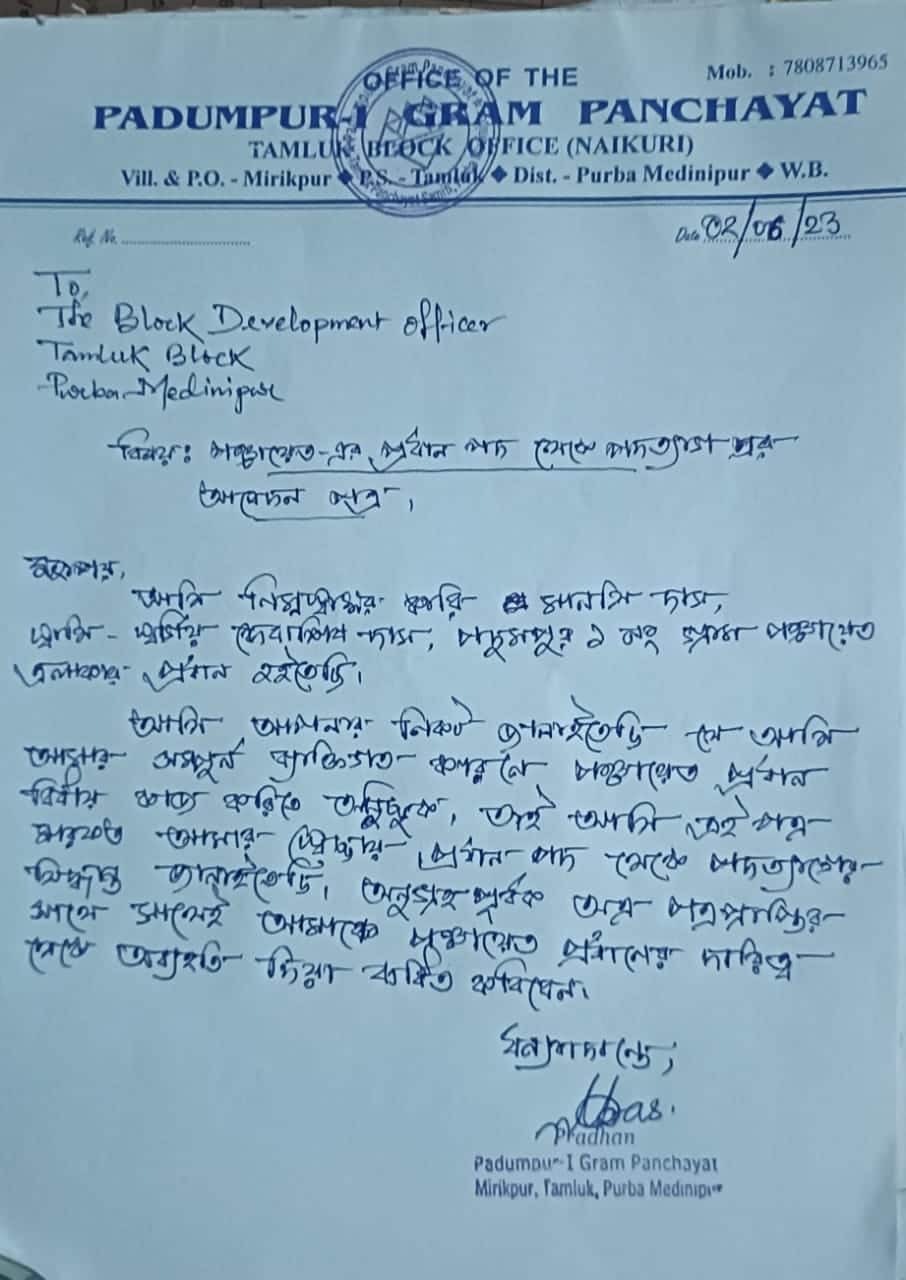 OFFICE OF THE
Mob. : 7808713965
PADUMPUR-I GRAM PANCHAYAT
TAMLUK BLOCK OFFICE (NAIKURI)
Vill. & P.O. - Mirikpur ◆ P.S. - Tamluk ◆ Dist. - Purba Medinipur ◆ W.B.
Ref. No. ..............................
Date 02/06/23
To,
The Block Development officer
Tamluk Block
Purba Medinipur
বিষয়: পঞ্চায়েত-এর প্রধান পদ থেকে পদত্যাগ পত্রর
আবেদন পত্র,
মহাশয়,
আমি নিম্নস্বাক্ষর কারি মানসি দাস,
স্বামি - স্বর্গিয় দেবাশিষ দাস, পদুমপুর ১ নং গ্রাম পঞ্চায়েত
এলাকার প্রধান হইতেছি।
আমি আপনার নিকট জানাইতেছি যে আমি
আমার সম্পূর্ন ব্যক্তিগত কারনে পঞ্চায়েত প্রধান
কার্য করিতে অনিচ্ছুক, তাই আমি এই পত্র
মারফত আমার স্বেচ্ছায় প্রধান পদ থেকে পদত্যাগের
সিদ্ধান্ত জানাইতেছি। অনুগ্রহ পূর্বক অত্র পত্রপ্রাপ্তির
সাথে সাথেই আমাকে পঞ্চায়েত প্রধানের দায়িত্ব
থেকে অব্যহতি দিয়া বাধিত করিবেন।
ধন্যবাদান্তে,
Pradhan
Padumpur-I Gram Panchayat
Mirikpur, Tamluk, Purba Medinipur